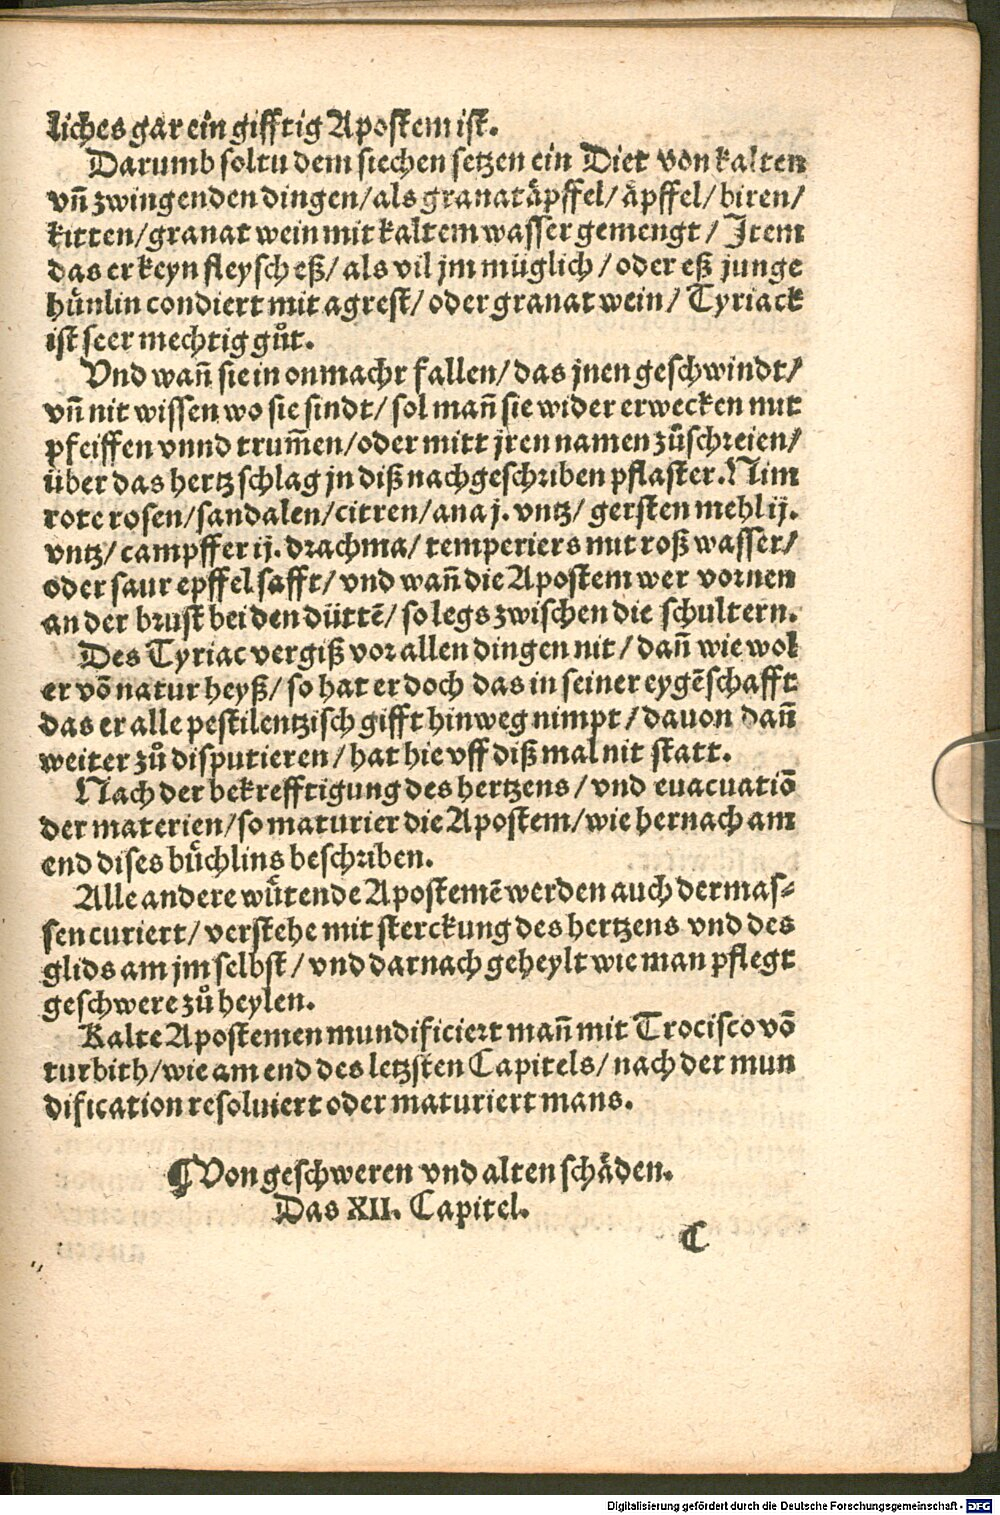 liches gar ein gifftig Apostem ist.
Darumb soltu dem siechen setzen ein Diet von kalten
vñ zwingenden dingen/als granatäpffel/ äpffel/ biren/
kitten/granat wein mit kaltem wasser gemengt / Item
das er keyn fleysch eß/ als vil jm müglich / oder eß junge
hünlin condiert mit agrest/ oder granat wein/ Tyriack
ist seer mechtig gůt.
Vnd wañ sie in onmacht fallen/ das jnen geschwindt/
vñ nit wissen wo sie sindt/ sol mañ sie wider erwecken mit
pfeiffen vnnd trum̃en/oder mitt jren namen zůschreien/
über das hertz schlag jn diß nachgeschriben pflaster. Nim
rote rosen/sandalen/citren/ana j. vntz/ gersten mehl ij.
vntz/ campffer ij. drachma/ temperiers mit roß wasser/
oder saur epffel safft/ vnd wañ die Apostem wer vornen
an der brust bei den düttẽ/ so legs zwischen die schultern.
Des Tyriac vergiß vor allen dingen nit / dañ wie wol
er võ natur heyß/ so hat er doch das in seiner eygẽschafft
das er alle pestilentzisch gifft hinweg nimpt / dauon dañ
weiter zů disputieren / hat hie vff diß mal nit statt.
Nach der bekrefftigung des hertzens / vnd euacuatiõ
der materien/so maturier die Apostem/wie hernach am
end dises büchlins beschriben.
Alle andere wütende Apostemẽ werden auch dermas⸗
sen curiert/ verstehe mit sterckung des hertzens vnd des
glids am jm selbst / vnd darnach geheylt wie man pflegt
geschwere zů heylen.
Kalte Apostemen mundificiert mañ mit Trocisco võ
turbith/wie am end des letzsten Capitels/ nach der mun
dification resoluiert oder maturiert mans.
¶Von geschweren vnd alten schäden.
Das XII. Capitel.
C
Digitalisierung gefördert durch die Deutsche Forschungsgemeinschaft - DFG